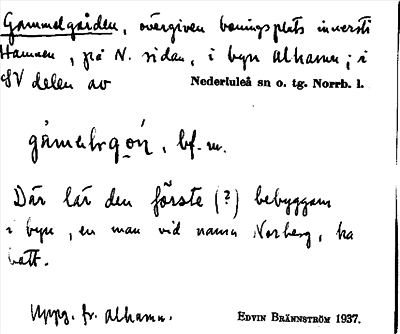 Gammelgården, övergiven boningsplats innerst i
Hamnen, på N. sidan, i byn Alhamn; i
SV delen av Nederluleå sn o. tg. Norrb. l.
bf. m.
Där lär den förste (?) bebyggaren
i byn, en man vid namn Norberg, ha
bott.
Uppg. fr. Alhamn. EDVIN BRÄNNSTRÖM 1937.